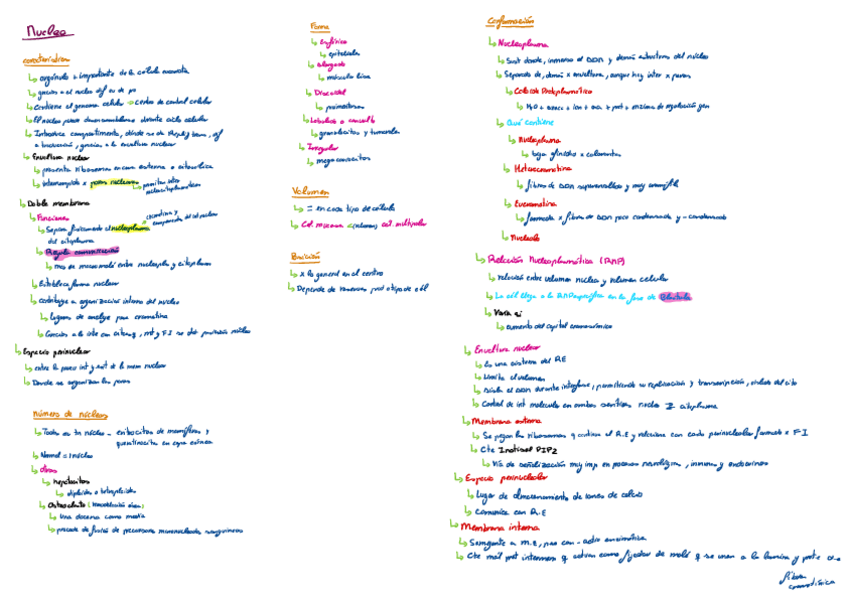 Nucleo
características
orgánulo + importante de la célula eucariota
gracias a el nucleo dif eu de pro
Contiene el genoma celular → centro de control celular
El núcleo puede desensamblarse durante ciclo celular
Introduce compartimento, dónde se da
+ traducción, gracias a la envoltura nuclear
Envoltura nuclear
presenta ribosomas en cara externa o citosólica
interrumpido x poros nucleares
Doble membrana
Funciones
Separa físicamente el nucleoplasma
del citoplasma
Regula comunicación
mov de macromolé entre nucleopl y citoplasma
Establece forma nuclear
contribuye a organización interna del núcleo
lugares de anclaje para cromatina
Gracias a la inte con citoesq, mt y F.I se da posición núcleo
Espacio perinuclear
entre la parte int y ext de la mem nuclear
Donde se organizan los poros
número de núcleos
Todas es tn núcleo - eritrocitos de mamíferos y
queratinocitos en capa córnea
Normal = 1 núcleo
otros
hepatocitos
diploides o tetraploides
Osteoclasto (remodelación ósea)
Una docena como media
procede de fusión de precursores mononucleados sanguíneos
Forma
Esférico
epiteliales
alargado
músculo liso
Discoidal
Lobulado o
granulocitos y tumorales
Irregular
megacariocitos
Volumen
= en cada tipo de célula
Cél. menor <volumen> cél. multipolar
Posición
x lo general en el centro
Depende de
Conformación
Nucleoplasma
Sust donde, inmerso el DDN y demás estructuras del núcleo
Separado de, demás x envoltura, aunque hay inter x poros
Coloide Protoplasmático
H2O +
Qué contiene
Nucleoplasma
Heterocromatina
fibras de DDN superenrolladas y muy
Eucromatina
formada x fibras de DDN poco condensada y - condensada
Nucleolo
Relación Nucleoplasmática (RNP)
relación entre volumen núcleo y volumen celular
La cél llega a la RNP específica en la fase de Blástula
Varía si
aumento del capital cromosómico
Envoltura nuclear
Es una cisterna del RE
Limita el volumen
aísla el DDN durante interfase, permitiendo su replicación y transcripción, aislado del cito
Control de int molecular en ambos sentidos nucleo ⇄ citoplasma
Membrana externa
Se pegan los ribosomas q continua el R.E y relaciona con cesto perinuclear formado x F.I
Cte Inositol PIP2
Vía de señalización muy imp en procesos neurológicos, inmunes y endocrinos
Espacio perinuclear
Lugar de almacenamiento de iones de calcio
Comunica con R.E
Membrana interna
Semejante a M.E, pero con - activ enzimática
Cte mol prot intermem q actúan como fijador de mold q se unen a la lamina y prote de
fibra
cromatínica